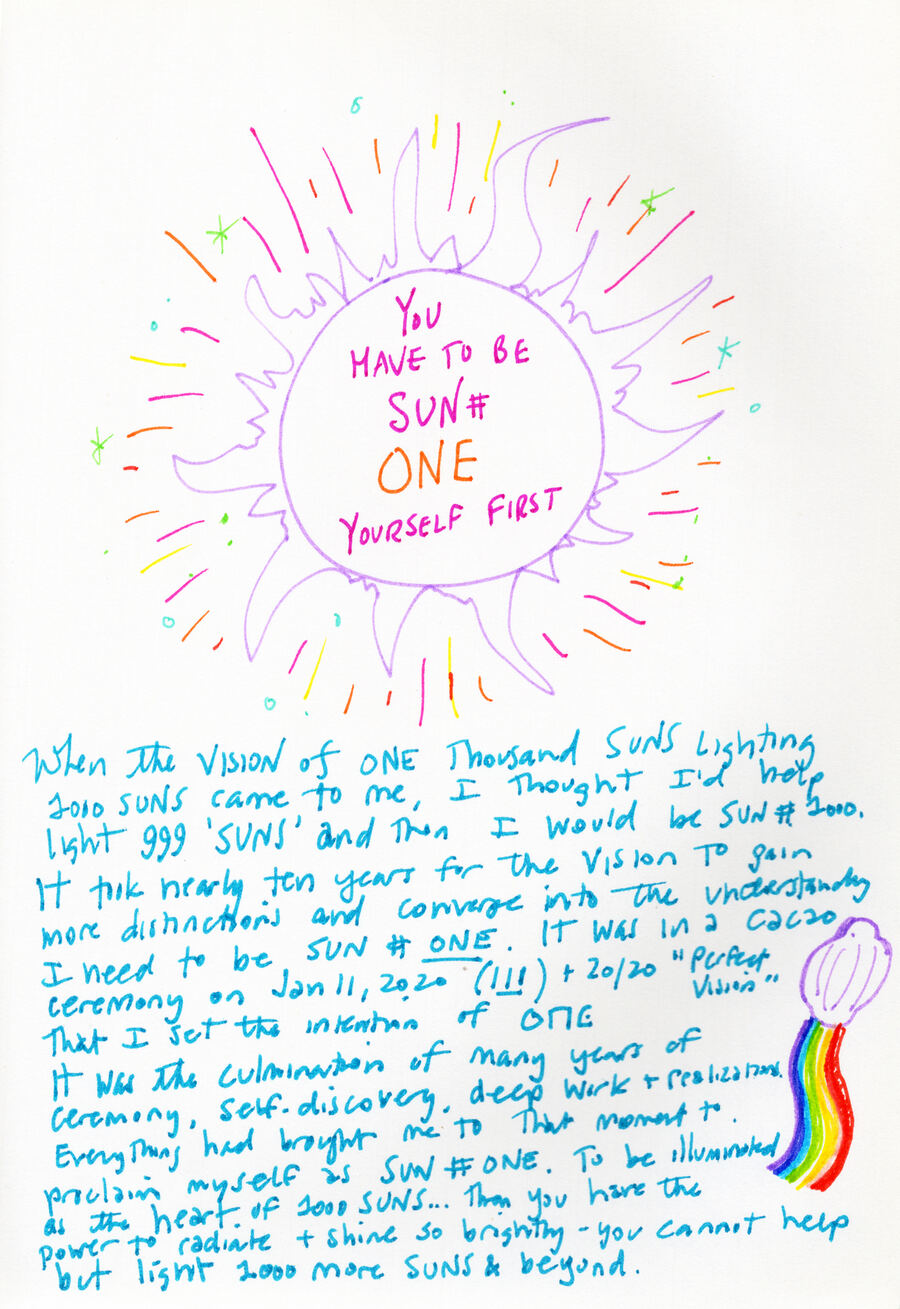 You
HAVE TO BE
SUN#
ONE
YOURSELF FIRST
When the VISION of ONE Thousand SUNS Lighting
1000 SUNS came to me, I thought I'd help
light 999 'SUNS' and Then I would be SUN # 1000.
It took nearly ten years for the Vision To gain
more distinctions and converge into the understanding
I need to be SUN # ONE. It was in a cacao
ceremony on Jan 11, 2020 (111) + 20/20 "Perfect
Vision"
That I set the intention of ONE
It was the culmination of many years of
ceremony, self-discovery, deep work + realizations.
Everything had brought me to That moment to
proclaim myself as SUN # ONE. To be illuminated
as the heart of 1000 SUNS... Then you have the
power to radiate + shine so brightly - you cannot help
but light 1000 more SUNS & beyond.